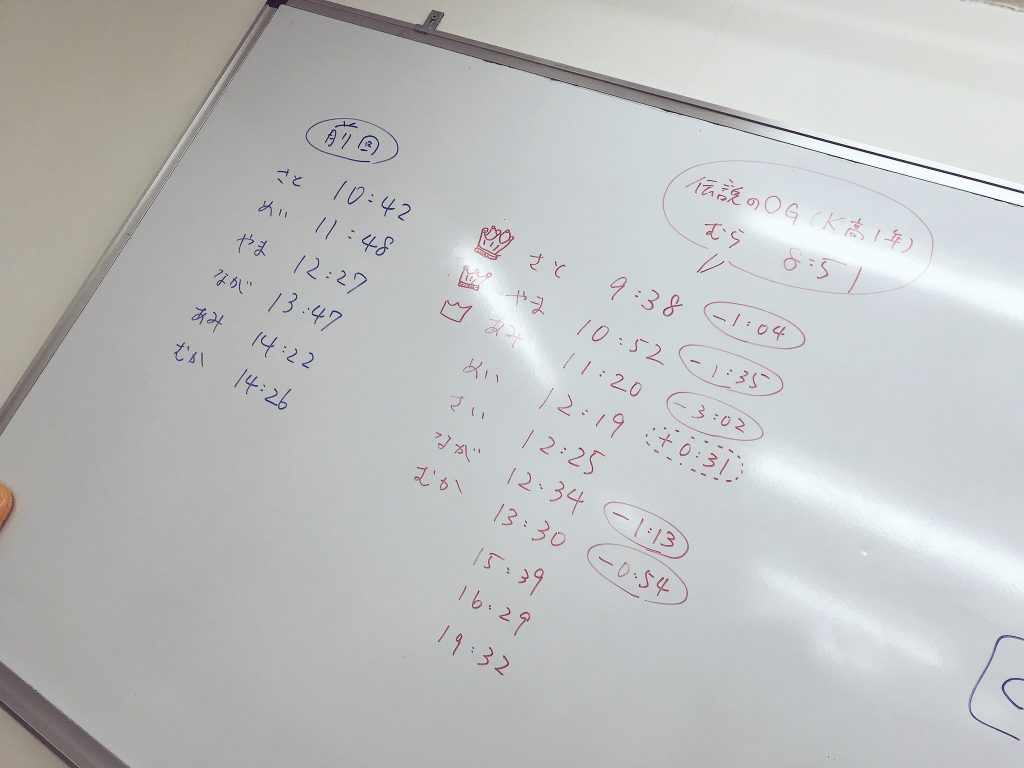 前回
さと 10:42
めい 11:48
やま 12:27
なが 13:47
あみ 14:22
むか 14:26
伝説のOG(K高1年)
むら 8:51
さと 9:38 -1:04
やま 10:52 -1:35
あみ 11:20 -3:02
めい 12:19 +0:31
さい 12:25
なが 12:34 -1:13
むか 13:30 -0:54
15:39
16:29
19:32